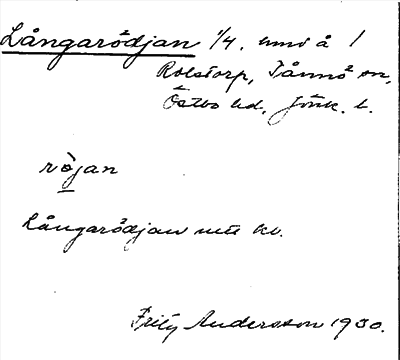 Långarödjan 1/4. hmn å 1
Rolstorp, Tånnö sn,
Östbo hd, Jönk. l.
röjan
Långarödjan kv.
Fritz Andersson 1930.